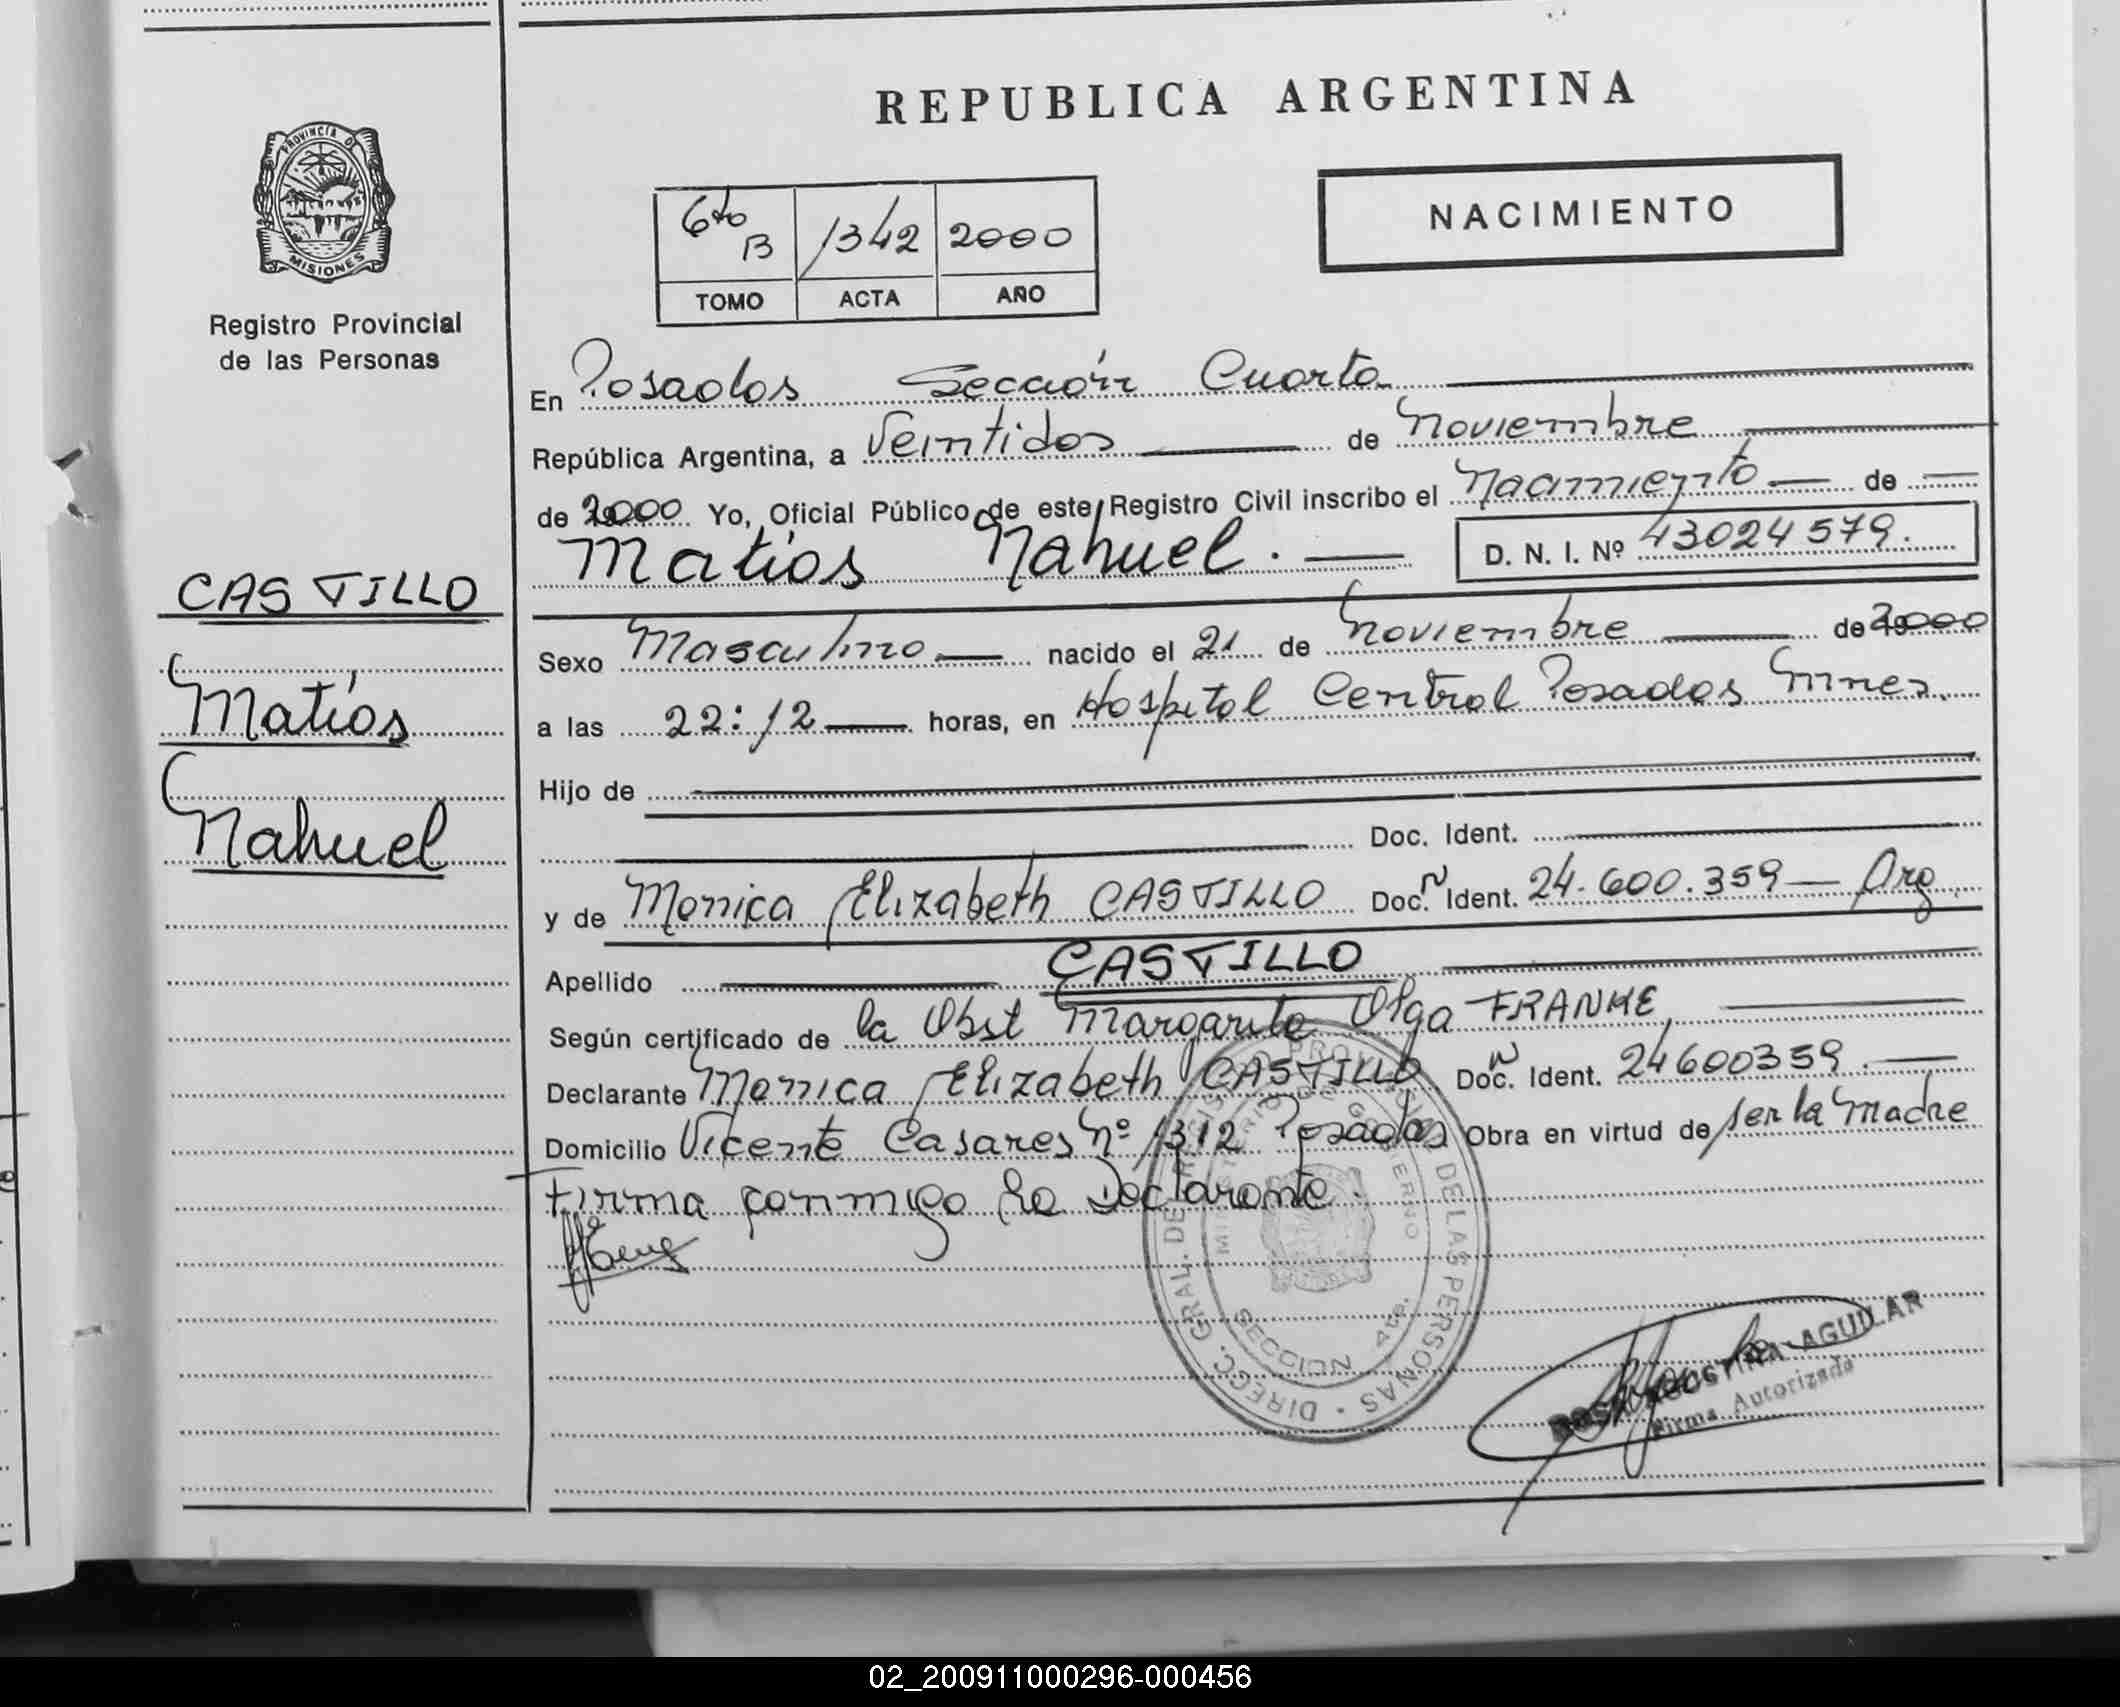 REPUBLICA ARGENTINA
PROVINCIA DE
MISIONES
Registro Provincial
de las Personas
6to B 1342 2000
TOMO ACTA AÑO
NACIMIENTO
En Posadas Sección Cuarta
República Argentina, a Veintidos de Noviembre
de 2000 Yo, Oficial Público de este Registro Civil inscribo el Nacimiento de
Matías Nahuel. D. N. I. Nº 43024579.
CASTILLO
Matías
Nahuel
Sexo Masculino nacido el 21 de Noviembre de 2000
a las 22:12 horas, en Hospital Central Posadas Mnes.
Hijo de
Doc. Ident.
y de Monica Elizabeth CASTILLO Doc. N Ident. 24.600.359 Arg.
Apellido CASTILLO
Según certificado de la Obst Margarita Olga FRANKE
Declarante Monica Elizabeth CASTILLO Doc. N Ident. 24600359.
Domicilio Vicente Casares Nº 1312 Posadas Obra en virtud de ser la Madre
Firma conmigo la Declarante.
DIREC. GRAL. DE REGISTRO PROVINCIAL DE LAS PERSONAS
MINISTERIO DE GOBIERNO
SECCION 4ta.
AGUILAR
Firma Autorizada
02_200911000296-000456